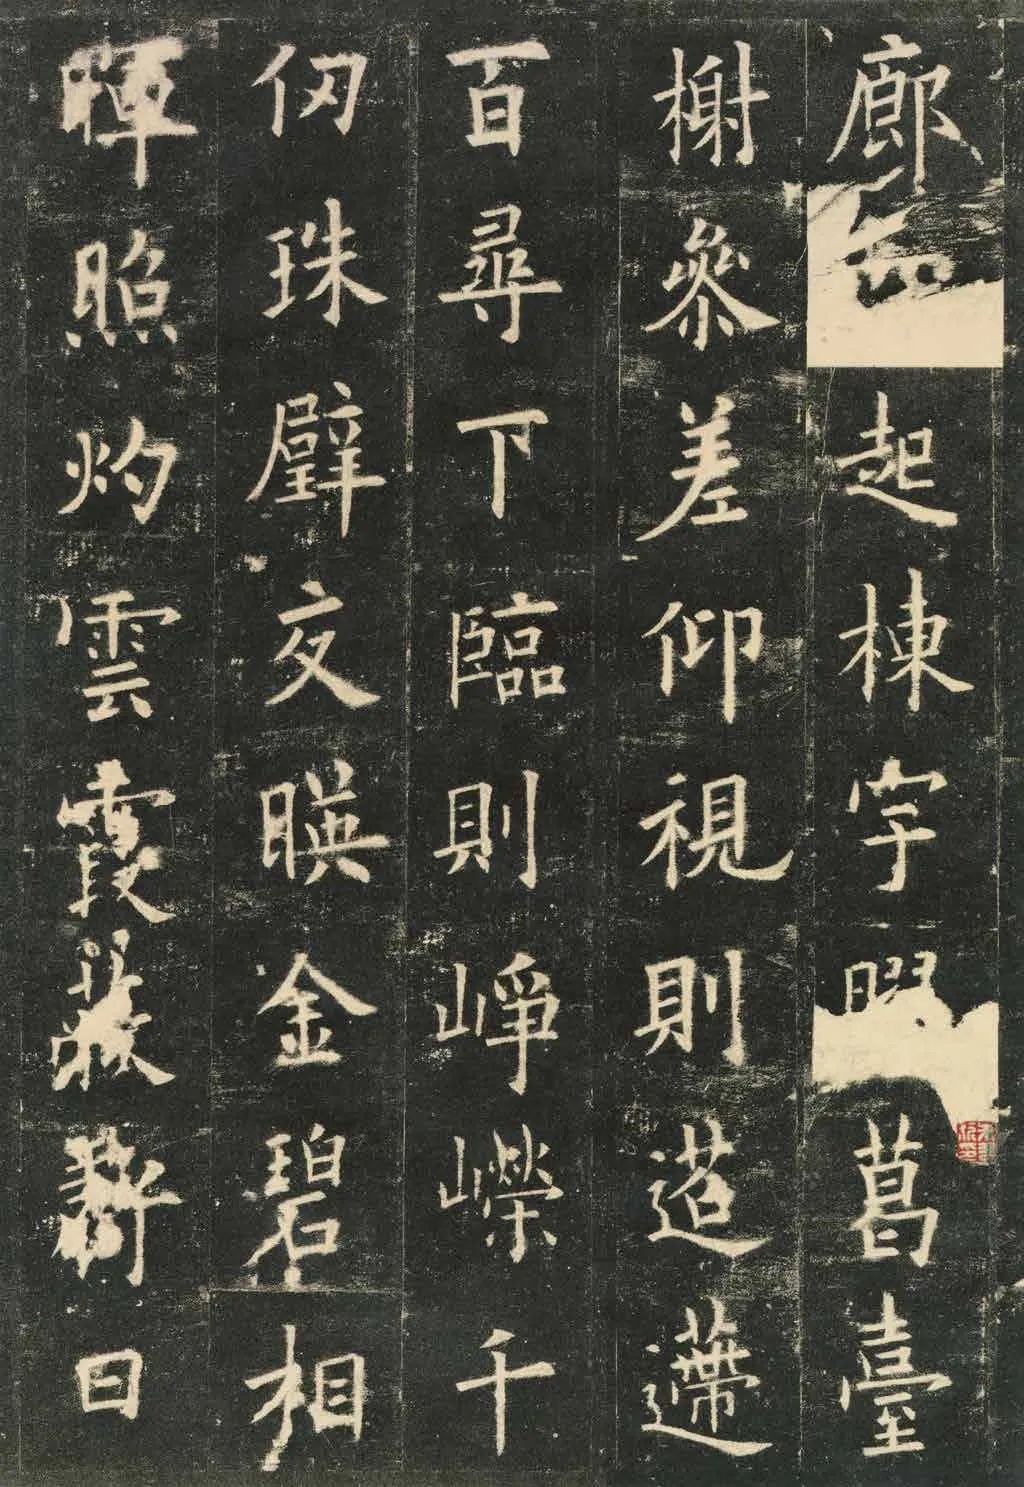 廊起棟宇葛臺
榭參差仰視則迢遰
百尋下臨則崢嶸千
仞珠璧交暎金碧相
暉照灼雲霞蔽虧日